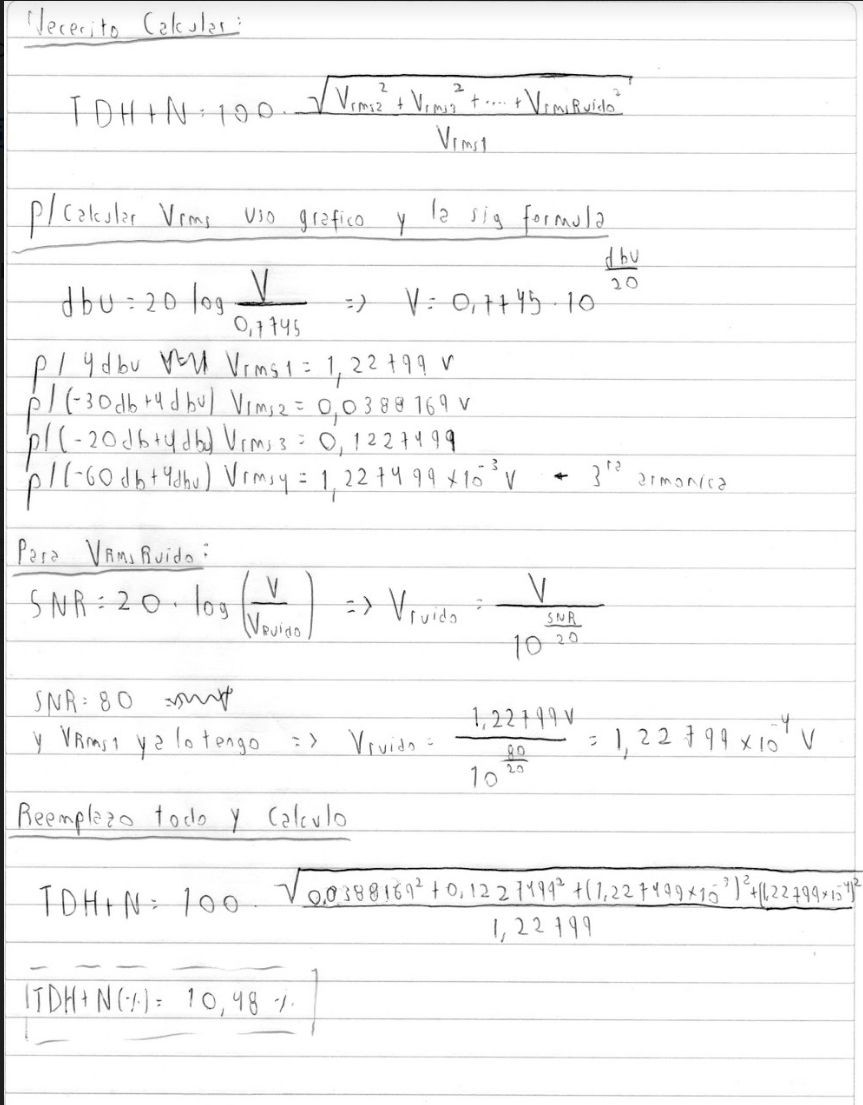 Necesito Calcular:
TDH+N = 100 · √(Vrms2² + Vrms3² + .... + VrmsRuido²) / Vrms1
p/ Calcular Vrms uso grafico y la sig formula
dbu = 20 log V / 0,7745 => V = 0,7745 · 10^(dbu/20)
p/ 4dbu Vrms1 = 1,22799 V
p/(-30db+4dbu) Vrms2 = 0,0388169 V
p/(-20db+4dbu) Vrms3 = 0,1227499
p/(-60db+4dbu) Vrms4 = 1,227499 x 10⁻³ V ← 3ra armonica
Para VRms Ruido:
SNR = 20 · log (V / VRuido) => Vruido = V / 10^(SNR/20)
SNR = 80
y VRms1 ya lo tengo => Vruido = 1,22799 V / 10^(80/20) = 1,22799 x 10⁻⁴ V
Reemplazo todo y Calculo
TDH+N = 100 · √(0,0388169² + 0,1227499² + (1,227499x10⁻³)² + (1,22799x10⁻⁴)²) / 1,22799
TDH+N(%) = 10,48 %